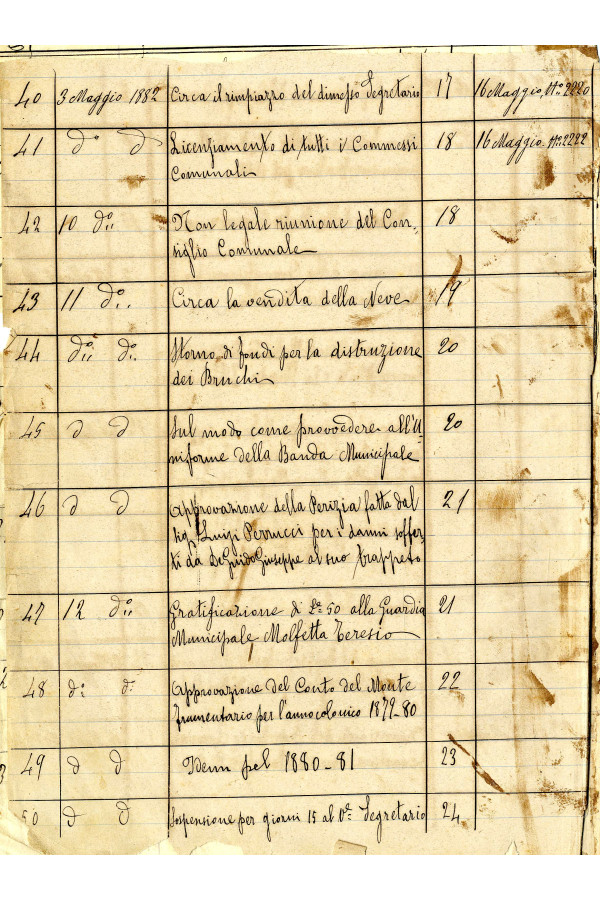 40 3 Maggio 1882 Circa il rimpiazzo del dimesso Segretario 17 16 Maggio, No. 2220
41 do d Licenziamento di tutti i Commessi 18 16 Maggio No. 2222
Comunali
42 10 do Non legale riunione del Con-
siglio Comunale 18
43 11 do Circa la vendita della Neve 19
44 do do Storno di fondi per la distruzione 20
dei Bruchi
45 d d Sul modo come provvedere all'U- 20
niforme della Banda Municipale
46 d d Approvazione della Perizia fatta dal 21
Sig. Luigi Perrucci per i danni soffer-
ti da De Guido Giuseppe al suo trappeto
47 12 do Gratificazione di Le 50 alla Guardia 21
Municipale Molfetta Teresio
48 do do Approvazione del Conto del Monte 22
Frumentario per l'anno colonico 1879-80
49 d d Idem pel 1880-81 23
50 d d Sospensione per giorni 15 al Segretario 24